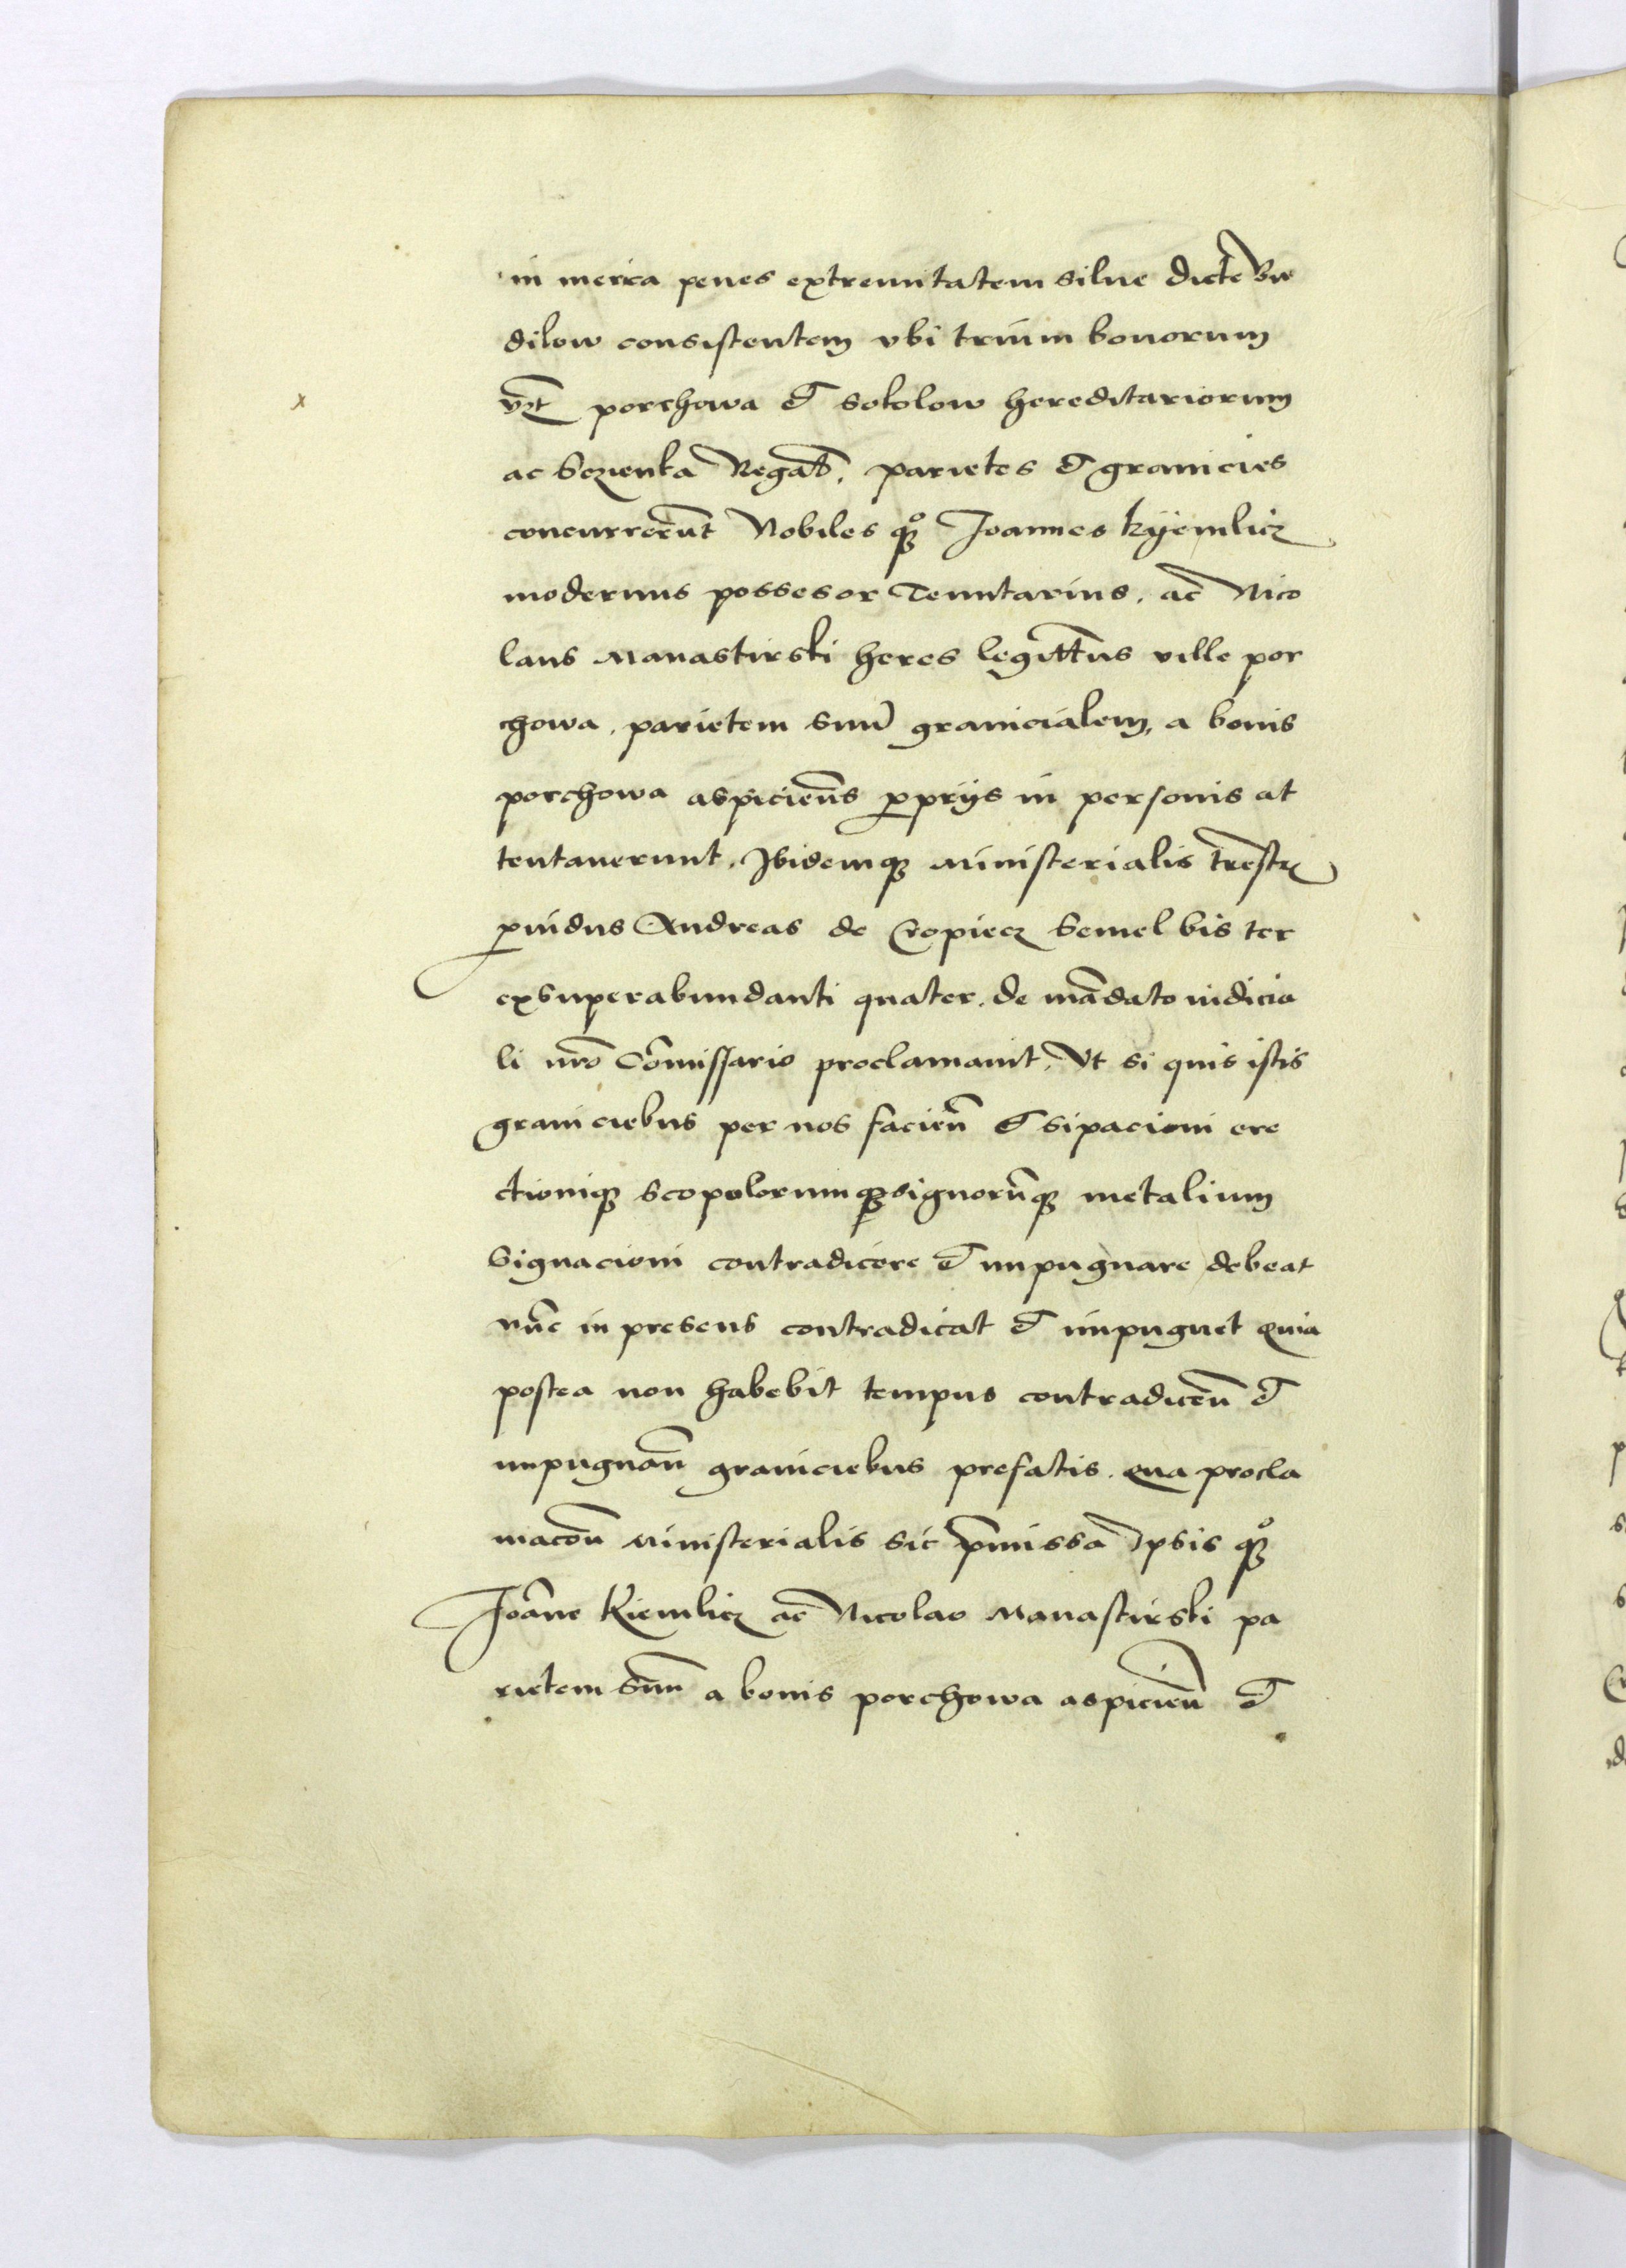 in merica penes extremitatem silue dicte Bu
dilow consistentem vbi trium bonorum
vꝫt porchowa et sokolow hereditariorum
ac Sczienka Regaƚ, parietes et granicies
concurrerūt Nobiles qꝫº Joannes kyemlicz
modernus possesor Tenutarius, ac̄ Nico
laus Manastirski heres legitt̄us ville por
chowa, parietem suū granicialem, a bonis
porchowa aspicien̄s ꝓprijs in personis at
tentauerunt, Ibidemqꝫ ministerialis tr̄estr
ꝓuidus Andreas de Cropiecz semel bis ter
exsuperabundanti quater, de mādato iudicia
li nr̄o Cōmissario proclamauit, Vt si quis istis
graniciebus per nos facien̄ et sipacioni ere
ctioniqꝫ scopolorumqꝫ signorūqꝫ metalium
signacioni contradicere et impugnare debeat
nūc in presens contradicat et impugnet quia
postea non habebit tempus contradicen̄ et
impugnan̄ graniciebus prefatis, qua procla
macōn ministerialis sic p̄missa Ipsis qꝫº
Joāne Kiemlicz ac̄ Nicolao Manastirski pa
rietem suū a bonis porchowa aspicien̄ et